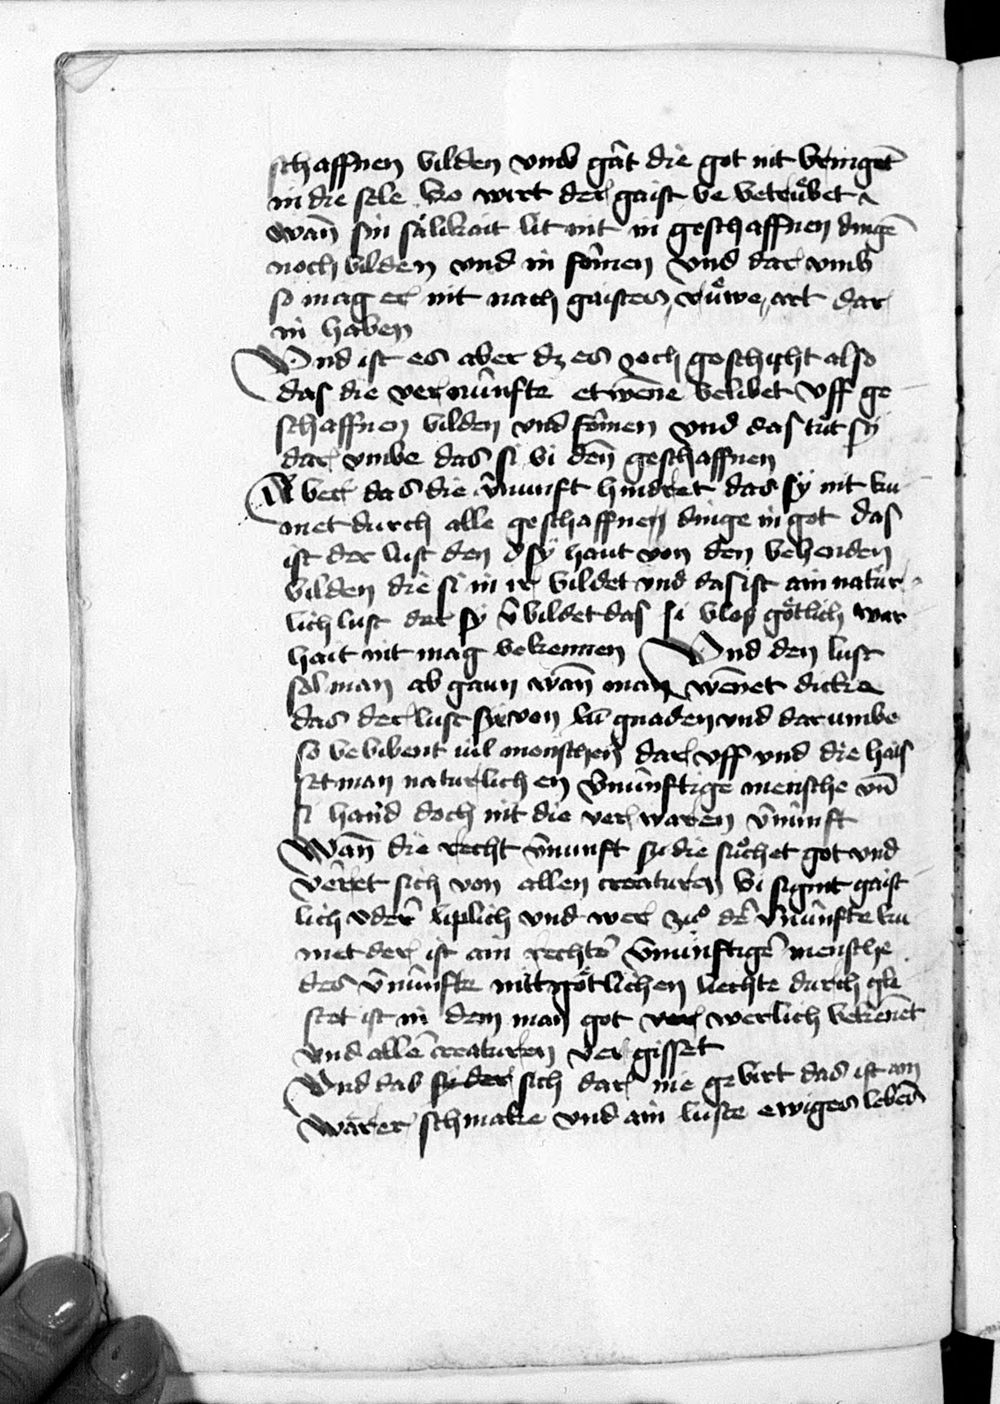 schaffnen bilden vmb găt die got nit bringēt
in die sele So wirt der gaist be betrůbet
wañ sin sálikait lit nit in geschaffnen dingē
noch bilden vnd in formen Vnd dar vmb
so mag er nit nach gaistes růwe art dar
in haben
Vnd ist es aber dz es roch geschicht also
das die vernúnfte etwene belibet vff ge
schaffnen bilden vnd formen vnd das tůt sy
dar vmbe das si bi den geschaffnen
Aber das die v̄nunft hindret das sy nit ku
met durch alle geschaffnen dinge in got das
ist der lust den sy haut von den behenden
bilden die si in ir bildet vnd das ist ain natúr
lich lust dar sy v̄bildet das si blos gŏtlich war
hait nit mag bekennen Vnd den lust
sol man ab gaun wañ man wēnet dicke
das der lust sye von gnaden vnd dar umbe
so belibent uil menschen dar vff vnd die hais
set man naturlich en v̄núnftige mensche vñ
si hand doch nit die ver waren v̄nunft
Wañ die recht v̄nunft sy die sůchet got vnd
v̄kret sich von allen creaturen si sigint gaist
lich oder liplich vnd wer zů der v̄núnfte ku
met der ist ain rechter v̄núnftige mensche
des v̄núnfte mit gŏtlichen liechte durch gle
stet ist in dem man got werlich bekenet
vnd alle creaturen ver gisset
Vnd das sich dar nie gebirt das ist ain
warer schmake vnd ain luste ewiges lebens